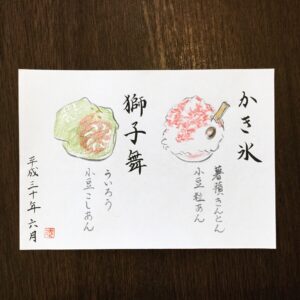 かき氷
薯蕷きんとん
小豆粒あん
獅子舞
ういろう
小豆こしあん
平成三十年 六月